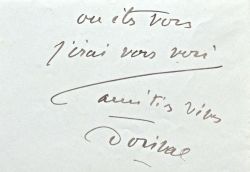 ou êtes vous
j'irai vous voir
amitiés vives
Dorival